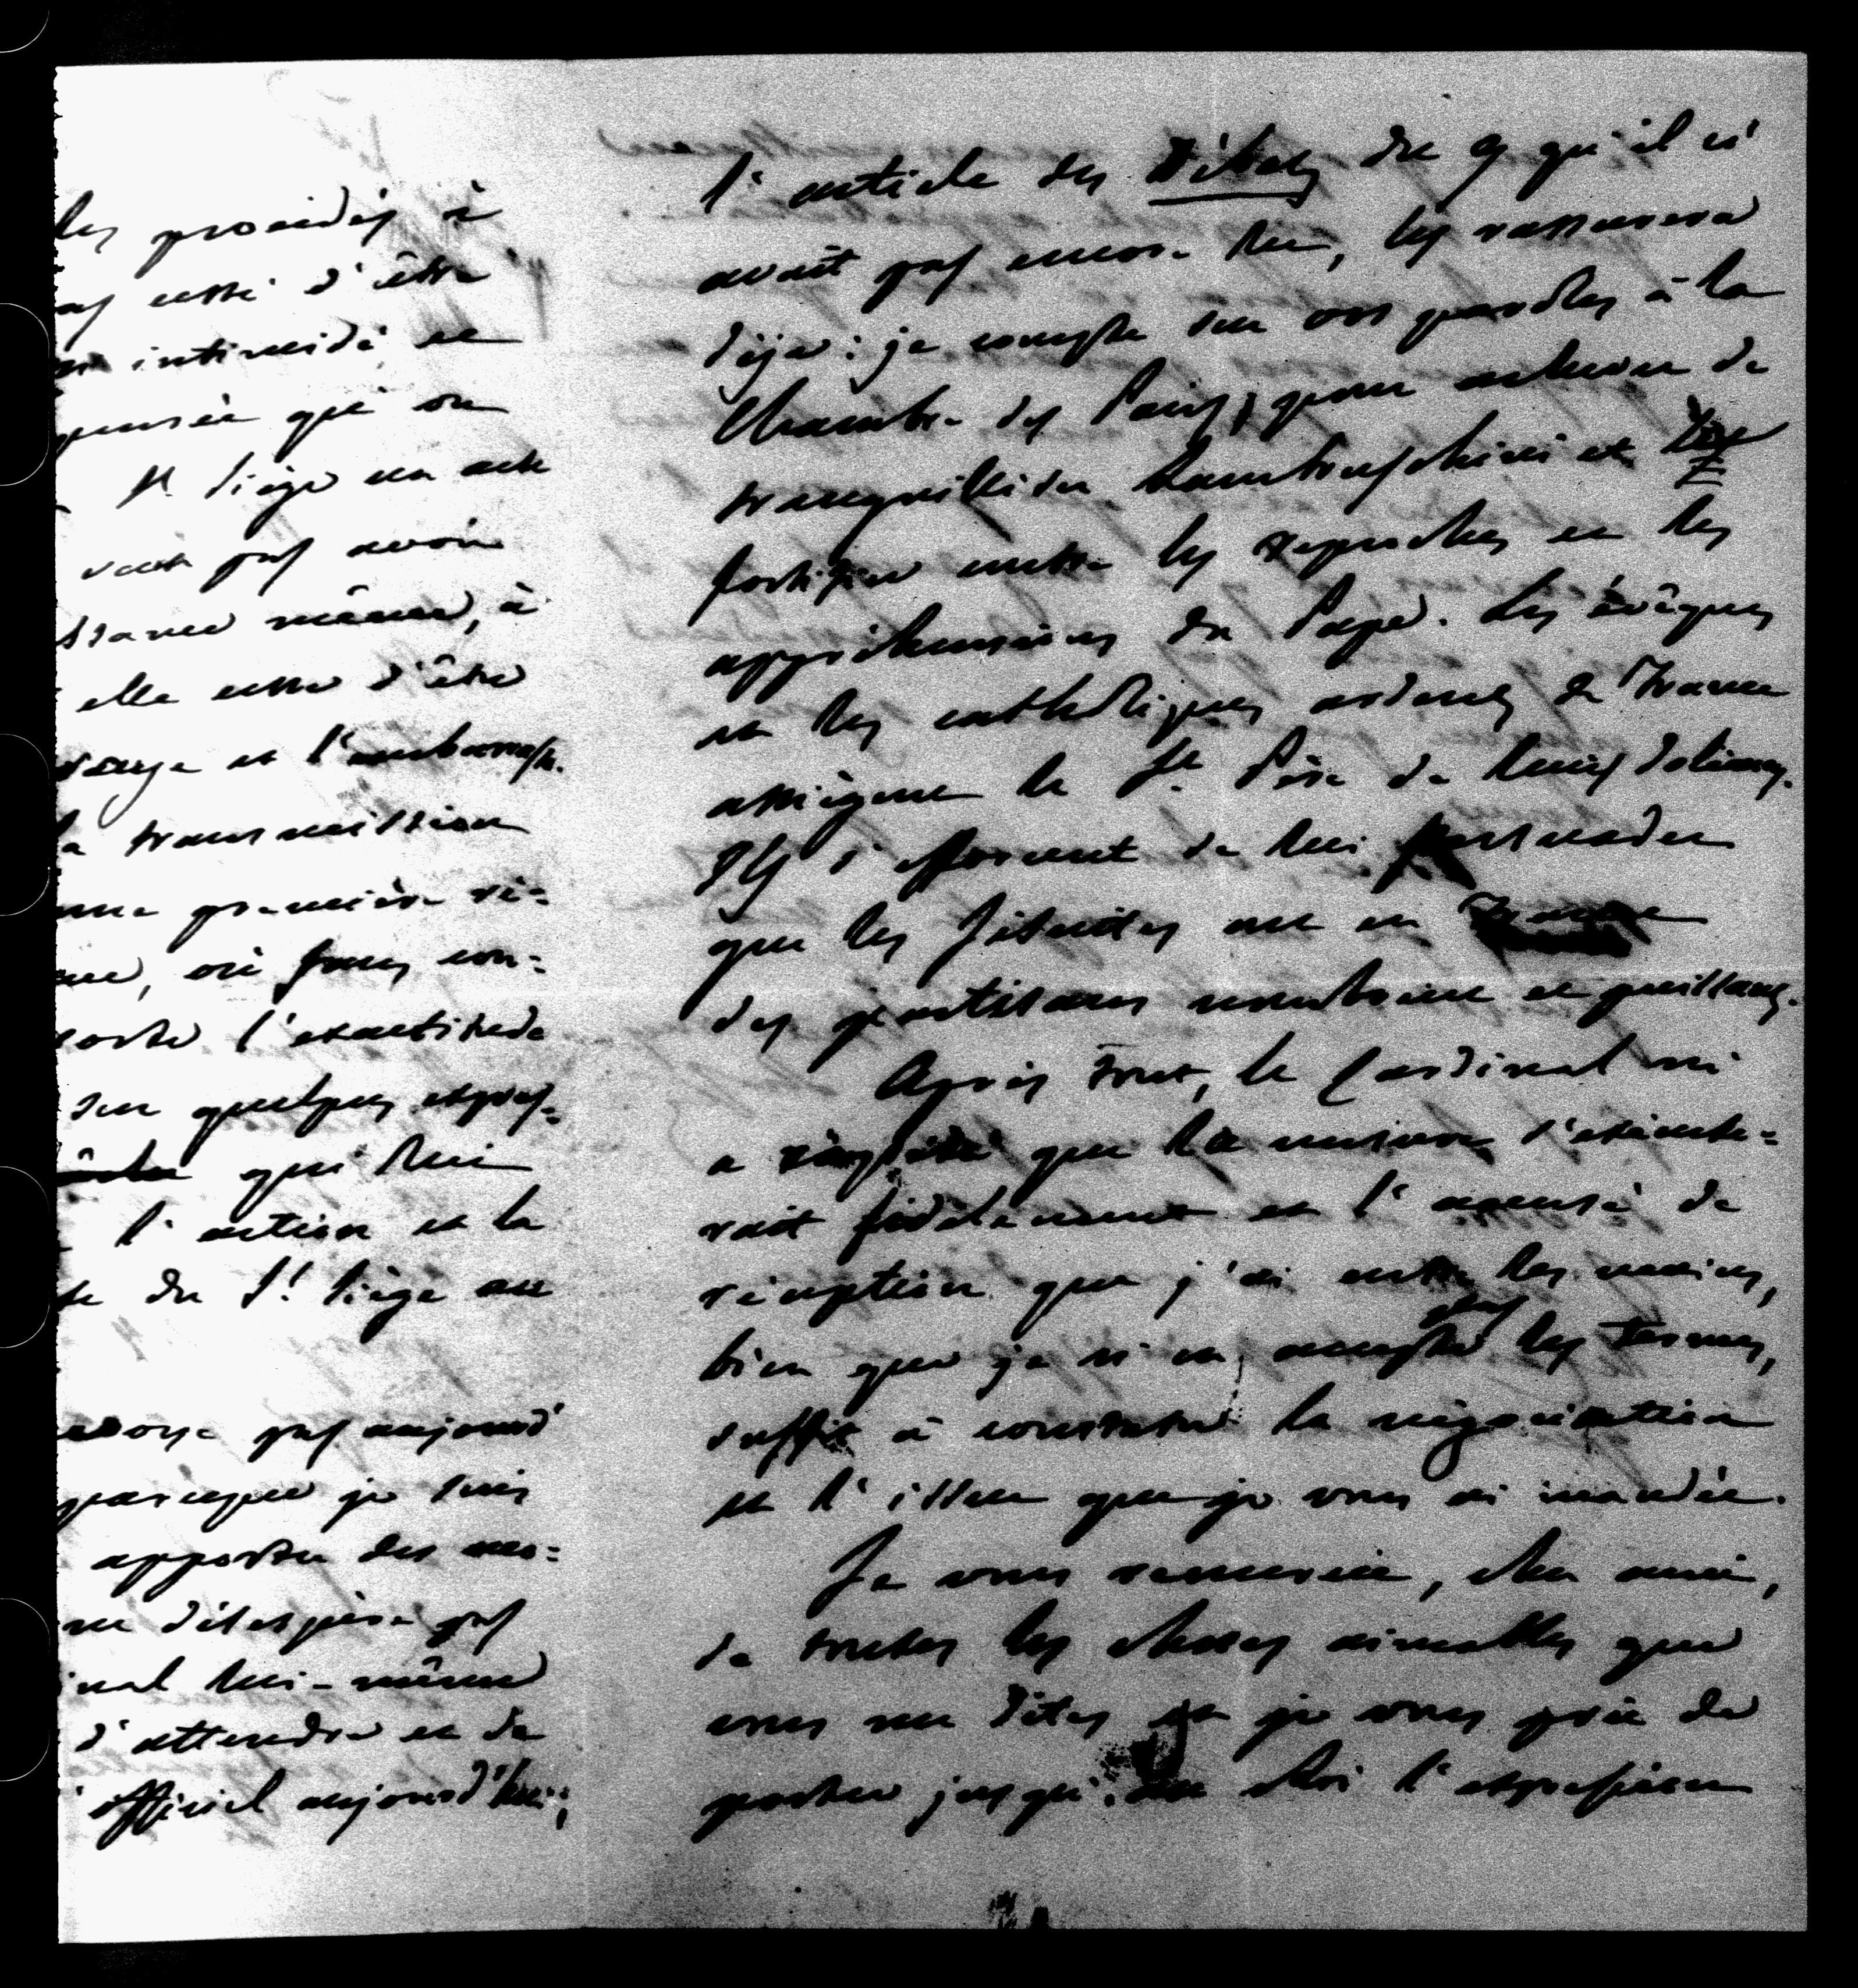 les procédés à
pas cessé d'être
intimidé et
pensée qu'on
St. Siège un acte
veut pas avoir
même, à
elle cesse d'être
et l'ambassade.
la transmission
une première ré=
où sous con=
l'exactitude
sur quelques expres=
qui lui
l'action et la
du St. Siège au
pas aujourd'
parceque je suis
apporter des mo=
ne désespère pas
lui-même
d'attendre et de
officiel aujourd'hui;
l'article des Débats du 9 qu'il n'
avait pas encore lu, les rassurera
déjà: je compte sur vos paroles à la
Chambre des Pairs, pour achever de
tranquilliser Lambruschini et le
fortifier contre les reproches et les
appréhensions du Pape. Les évêques
et les catholiques ardens de France
assiègent le St. Père de leurs doléances.
Ils s'efforcent de lui persuader
que les Jésuites ont en France
des partisans nombreux et puissans.
Après tout, le Cardinal m'
a répété que la mesure s'exécute=
rait fidèlement et l'accusé de
réception que j'ai entre les mains,
bien que je n'en accepte pas les termes,
suffit à constater la négociation
et l'issue que je vous ai mandée.
Je vous remercie, cher ami,
de toutes les choses aimables que
vous me dites et je vous prie de
porter jusqu'au Roi l'expression